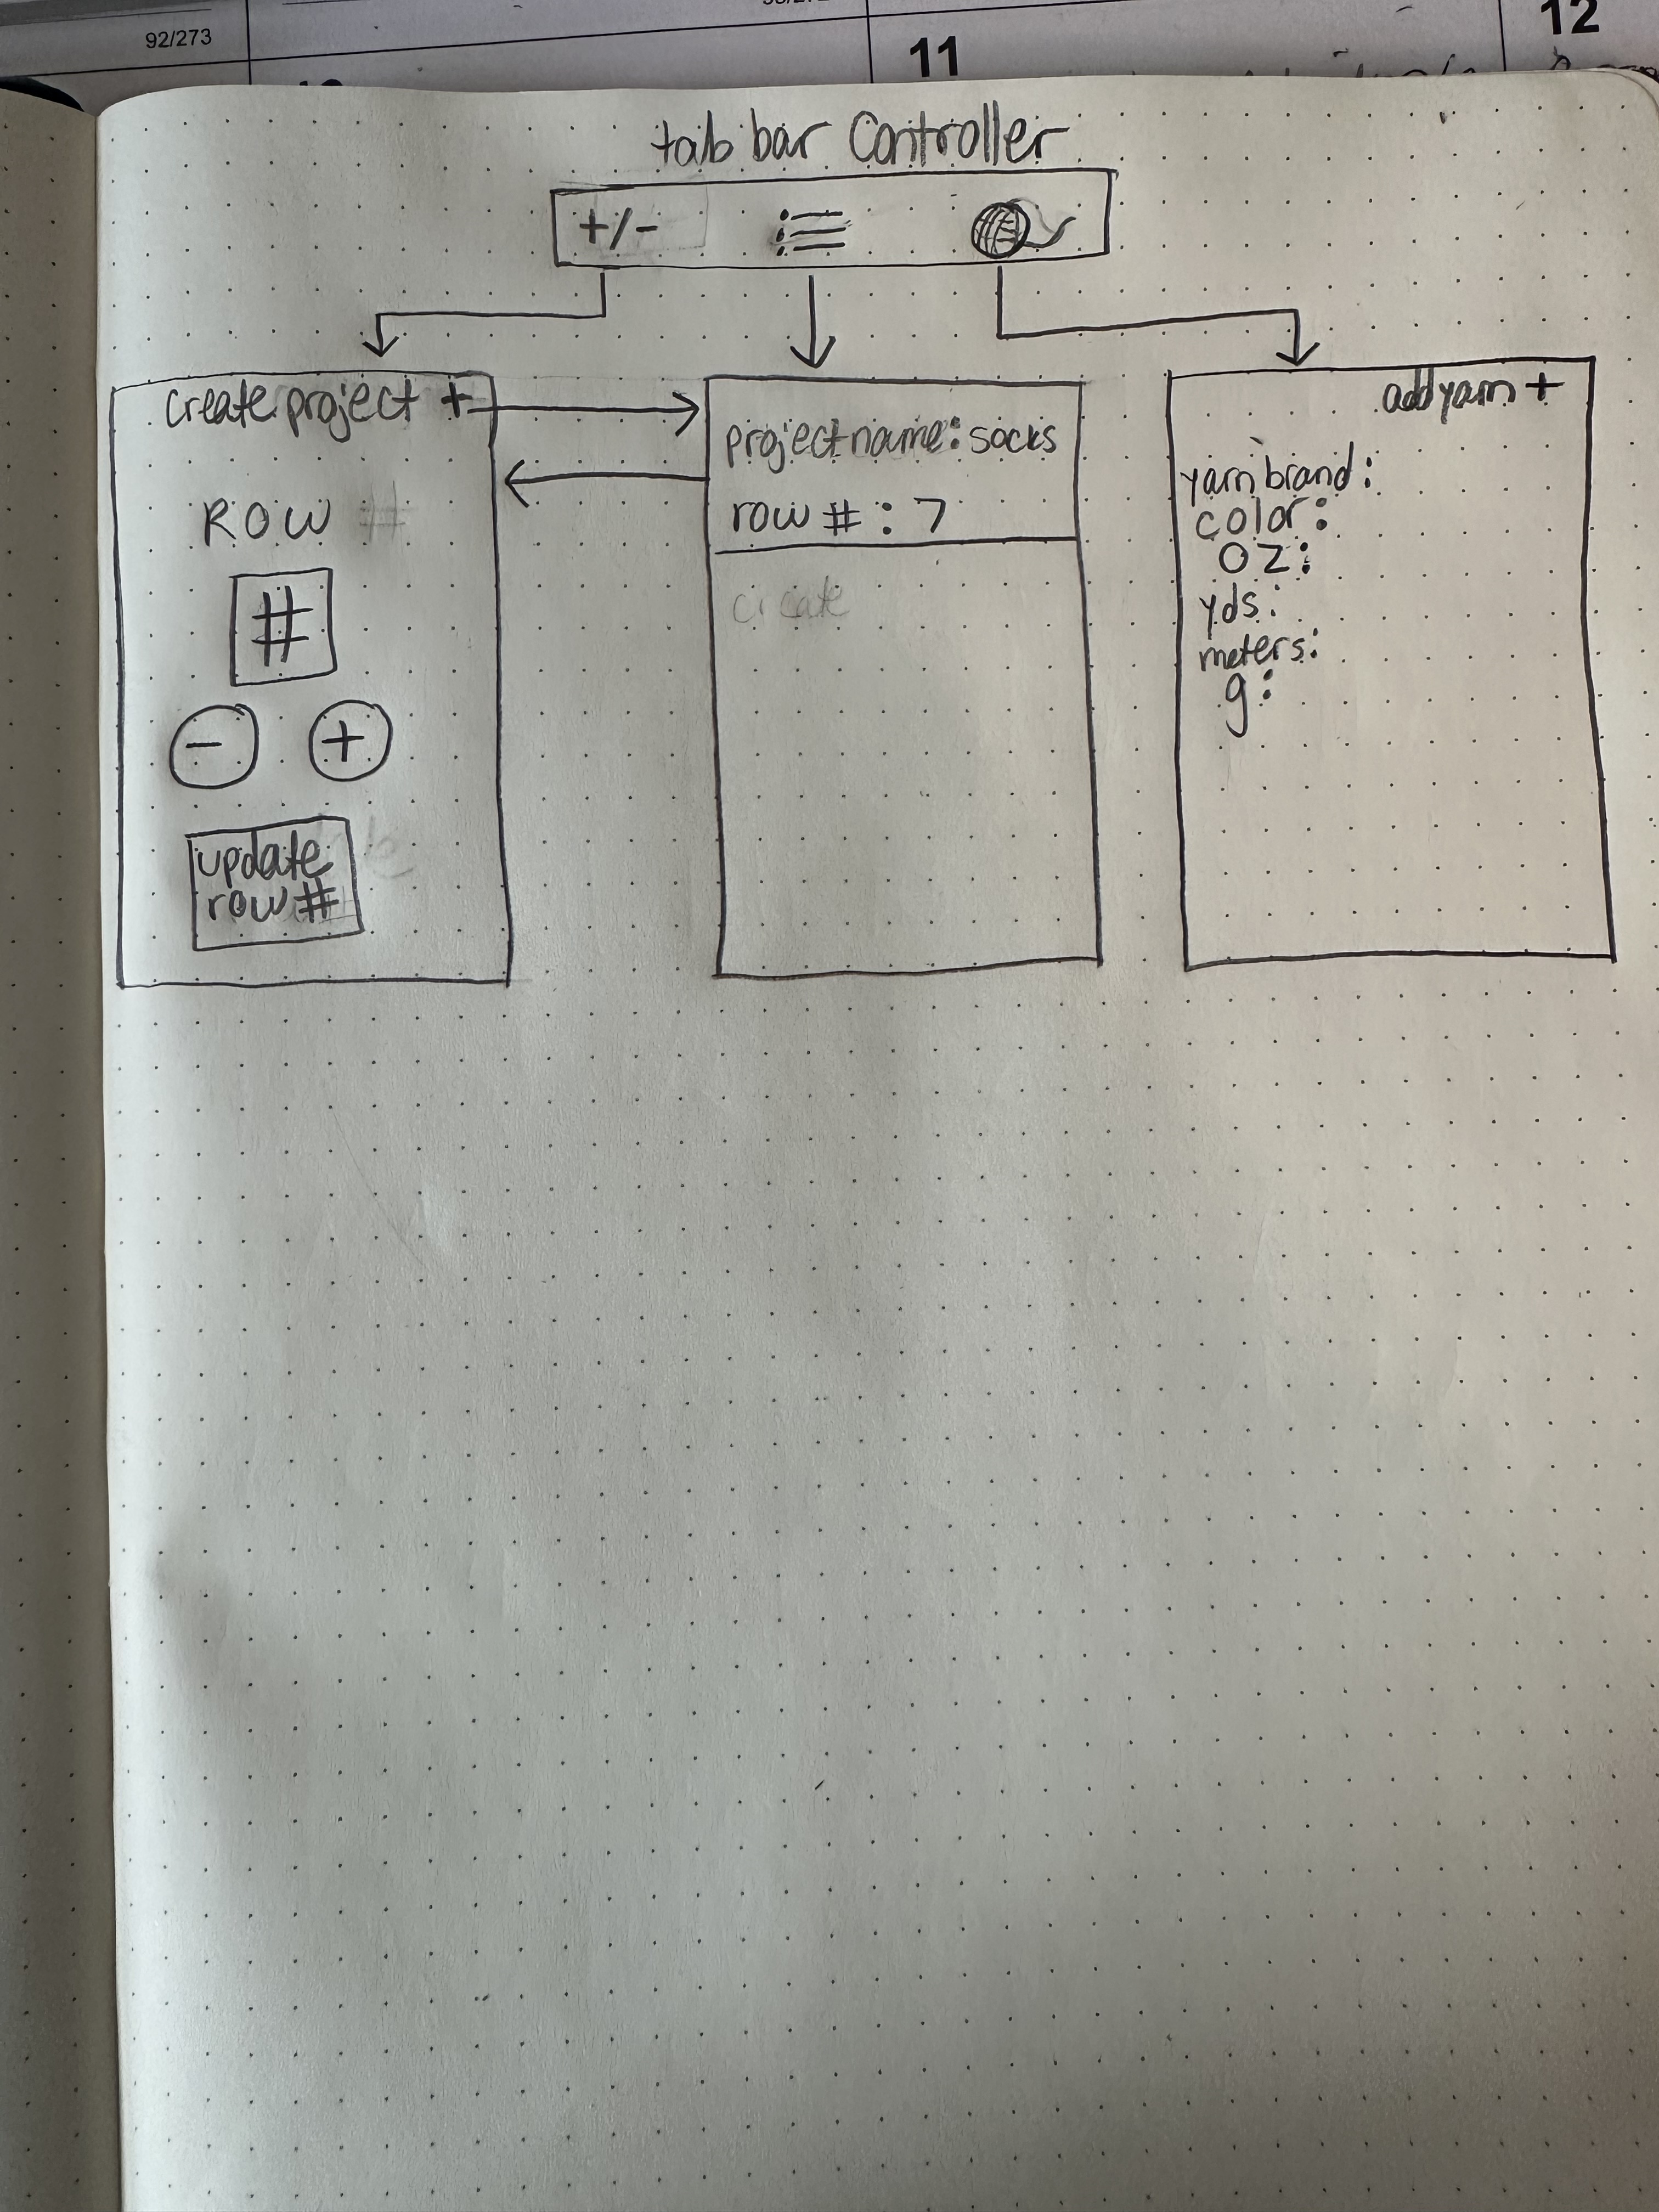 92/273
11
12
tab bar Controller
+/-
create project +
ROW #
#
- +
update
row #
project name: socks
row #: 7
create
add yarn +
yarn brand:
color:
oz:
yds:
meters:
g: